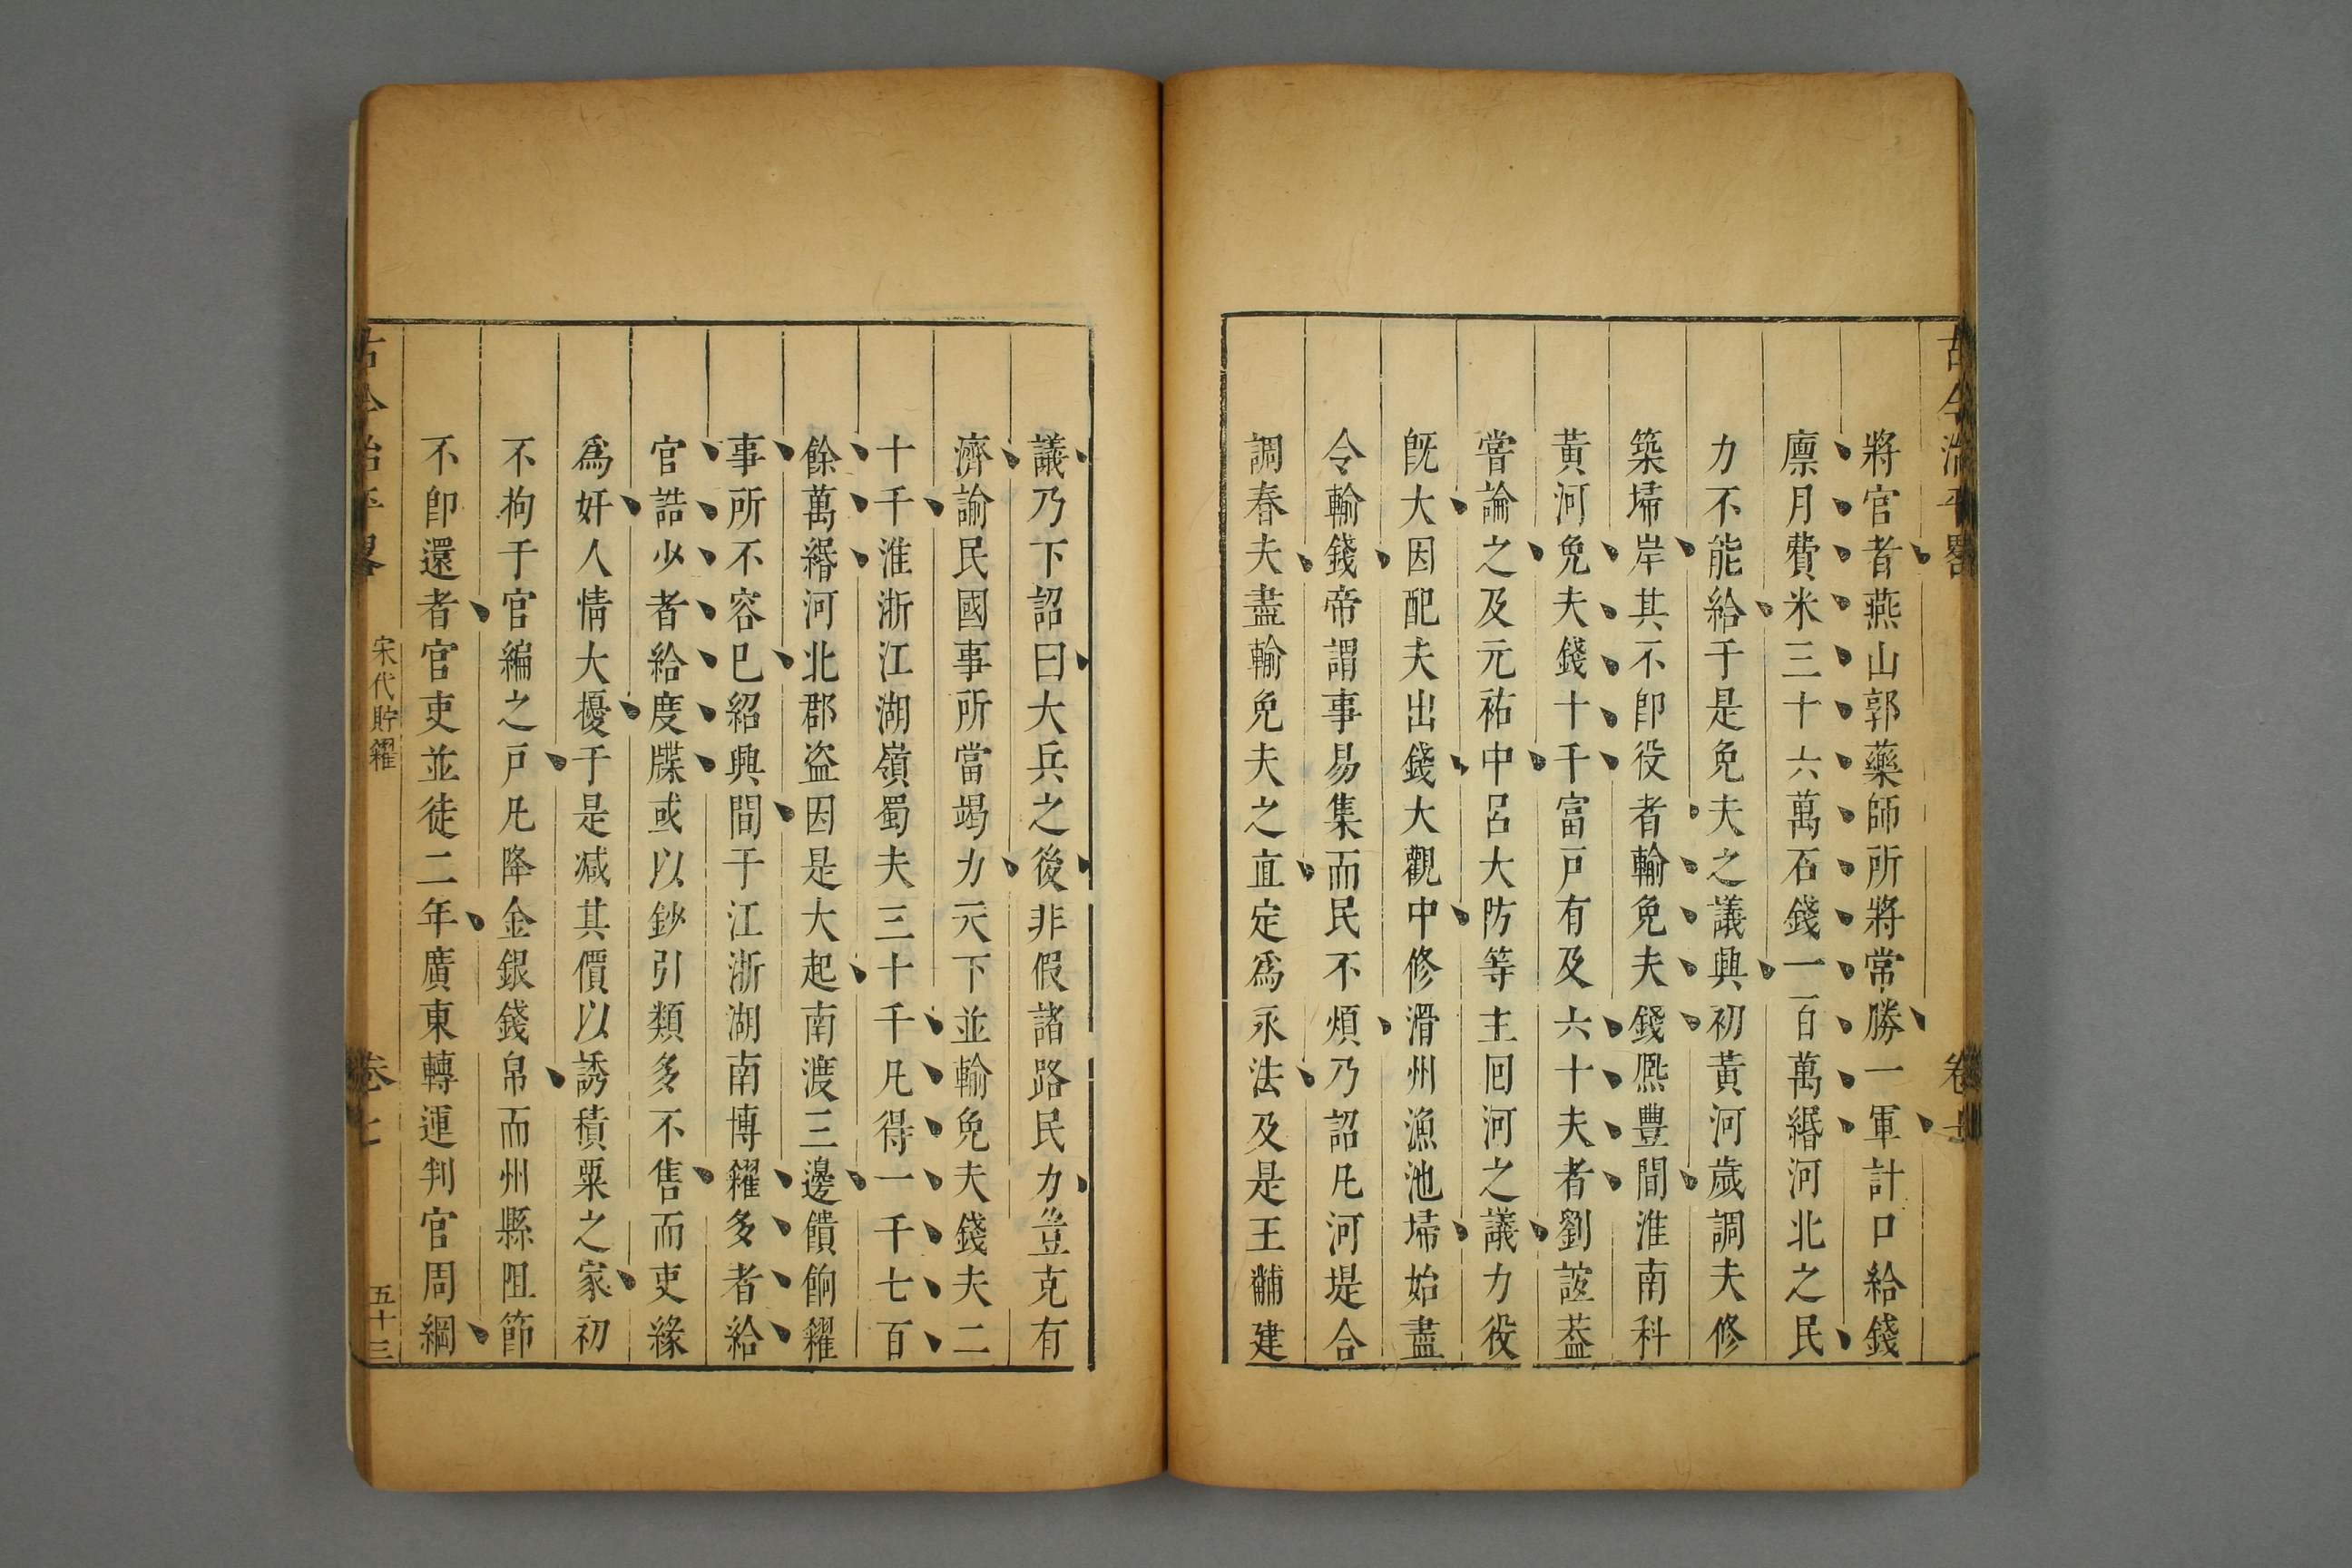 古今治平畧 卷七
將官者燕山郭藥師所將常勝一軍計口給錢
廪月費米三十六萬石錢一百萬緡河北之民
力不能給于是免夫之議興初黃河歲調夫修
築埽岸其不卽役者輸免夫錢熈豐間淮南科
黃河免夫錢十千富戸有及六十夫者劉誼葢
嘗論之及元祐中呂大防等主囘河之議力役
旣大因配夫出錢大觀中修滑州漁池埽始盡
令輸錢帝謂事易集而民不煩乃詔凡河堤合
調春夫盡輸免夫之直定爲永法及是王黼建
議乃下詔曰大兵之後非假諸路民力豈克有
濟諭民國事所當竭力天下並輸免夫錢夫二
十千淮浙江湖嶺蜀夫三十千凡得一千七百
餘萬緡河北郡盗因是大起南渡三邊饋餉糴
事所不容已紹興間于江浙湖南博糴多者給
官誥少者給度牒或以鈔引類多不售而吏緣
爲奸人情大擾于是减其價以誘積粟之家初
不拘于官編之戸凡降金銀錢帛而州縣阻節
不卽還者官吏並徒二年廣東轉運判官周綱
古今治平畧 宋代貯糴 卷七 五十三